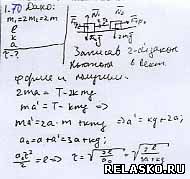 1.70 Дано:
m₁=2m₂=2m
l
k
a
τ-?
N₁
N₂
Fтр₂
2mg
mg
Записав 2-закон
Ньютона в вект.
форме и получим:
2ma = T - kmg
ma' = T - kmg
ma' = 2a·m + kmg => a' = kg + 2a;
a₀ = a + a' = 3a + kg;
a₀τ²/2 = l => τ = √(2l/a₀) = √(2l/(3a+kg))
WELASKO.RU